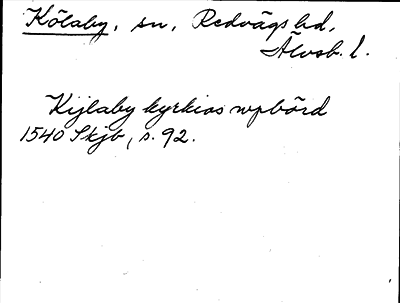 Kölaby, sn, Redvägs hd,
Älvsb. l.
Kijlaby kyrkios wpbörd
1540 Skjb, s. 92.